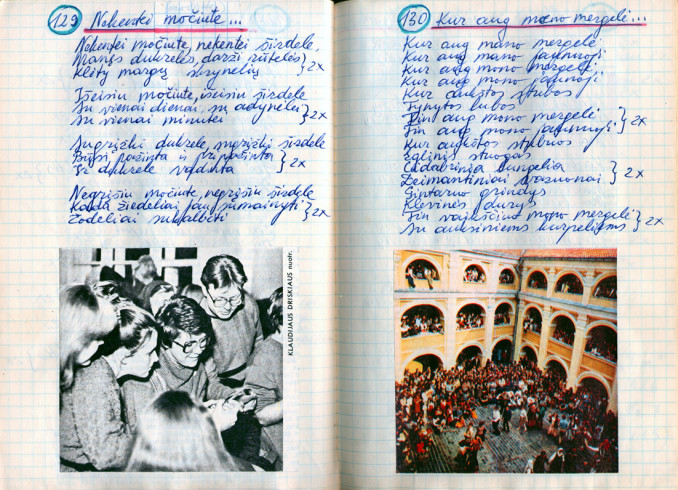 129 Nekentei močiute...
Nekentei močiute, nekentei širdele,
Manęs dukrelės, darži rūtelės
Klėty margų skrynelių } 2x
Išeisiu močiute, išeisiu širdele
Su vienai dienai, su adynėlei
Su vienai minutei } 2x
Sugrįžki dukrele, sugrįžki širdele
Būsi pažinta ir pripažinta
Ir dukrele vadinta } 2x
Negrįšiu močiute, negrįšiu širdele
Kada žiedeliai jau sumainyti
Žodeliai sukalbėti } 2x
KLAUDIJAUS DRISKIAUS nuotr.
130 Kur aug mano mergelė...
Kur aug mano mergelė
Kur aug mano jaunoji
Kur aug mano mergelė
Kur aug mano jaunoji
Kur aukštos stubos
Tynytos lubos
Tin aug mano mergelė
Tin aug mano jaunoji } 2x
Kur aukštos stubos
stuogas
langelia
Deimantiniai } 2x
Gintaro grindys
Klevinės durys
Tin vaikščino mano mergelė
Su auksiniems kurpeliems } 2x